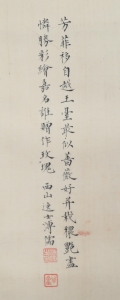 芳菲移自越王臺最似薔薇好并栽穠艷盡
憐勝彩繪嘉名誰贈作玫瑰 西山逸士溥儒